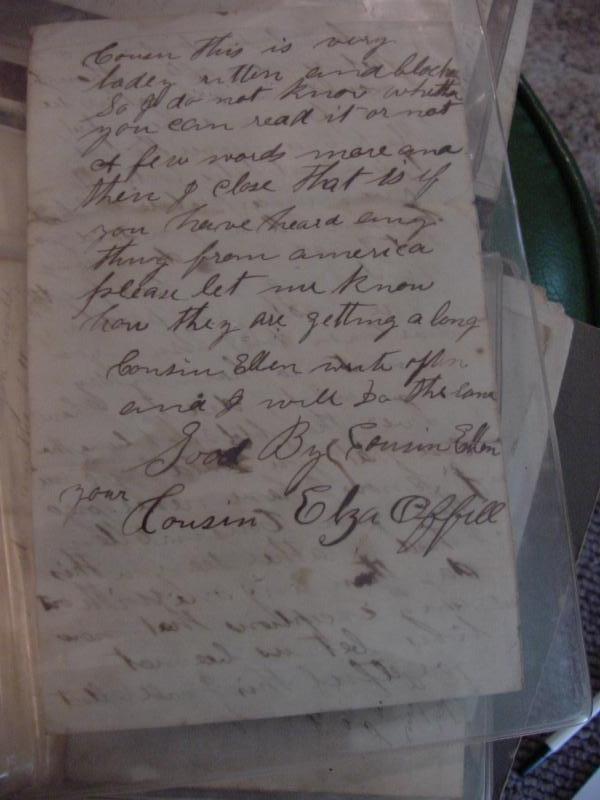 Cousin this is very
badey ritten and blocke
So I do not know whether
you can read it or not
A few words more and
then I close that is if
you have heard eny
thing from america
please let me know
how they are getting a long
Cousin Ellen write often
and I will do the same
Good Bye Cousin Ellen
your Cousin Elza Offill